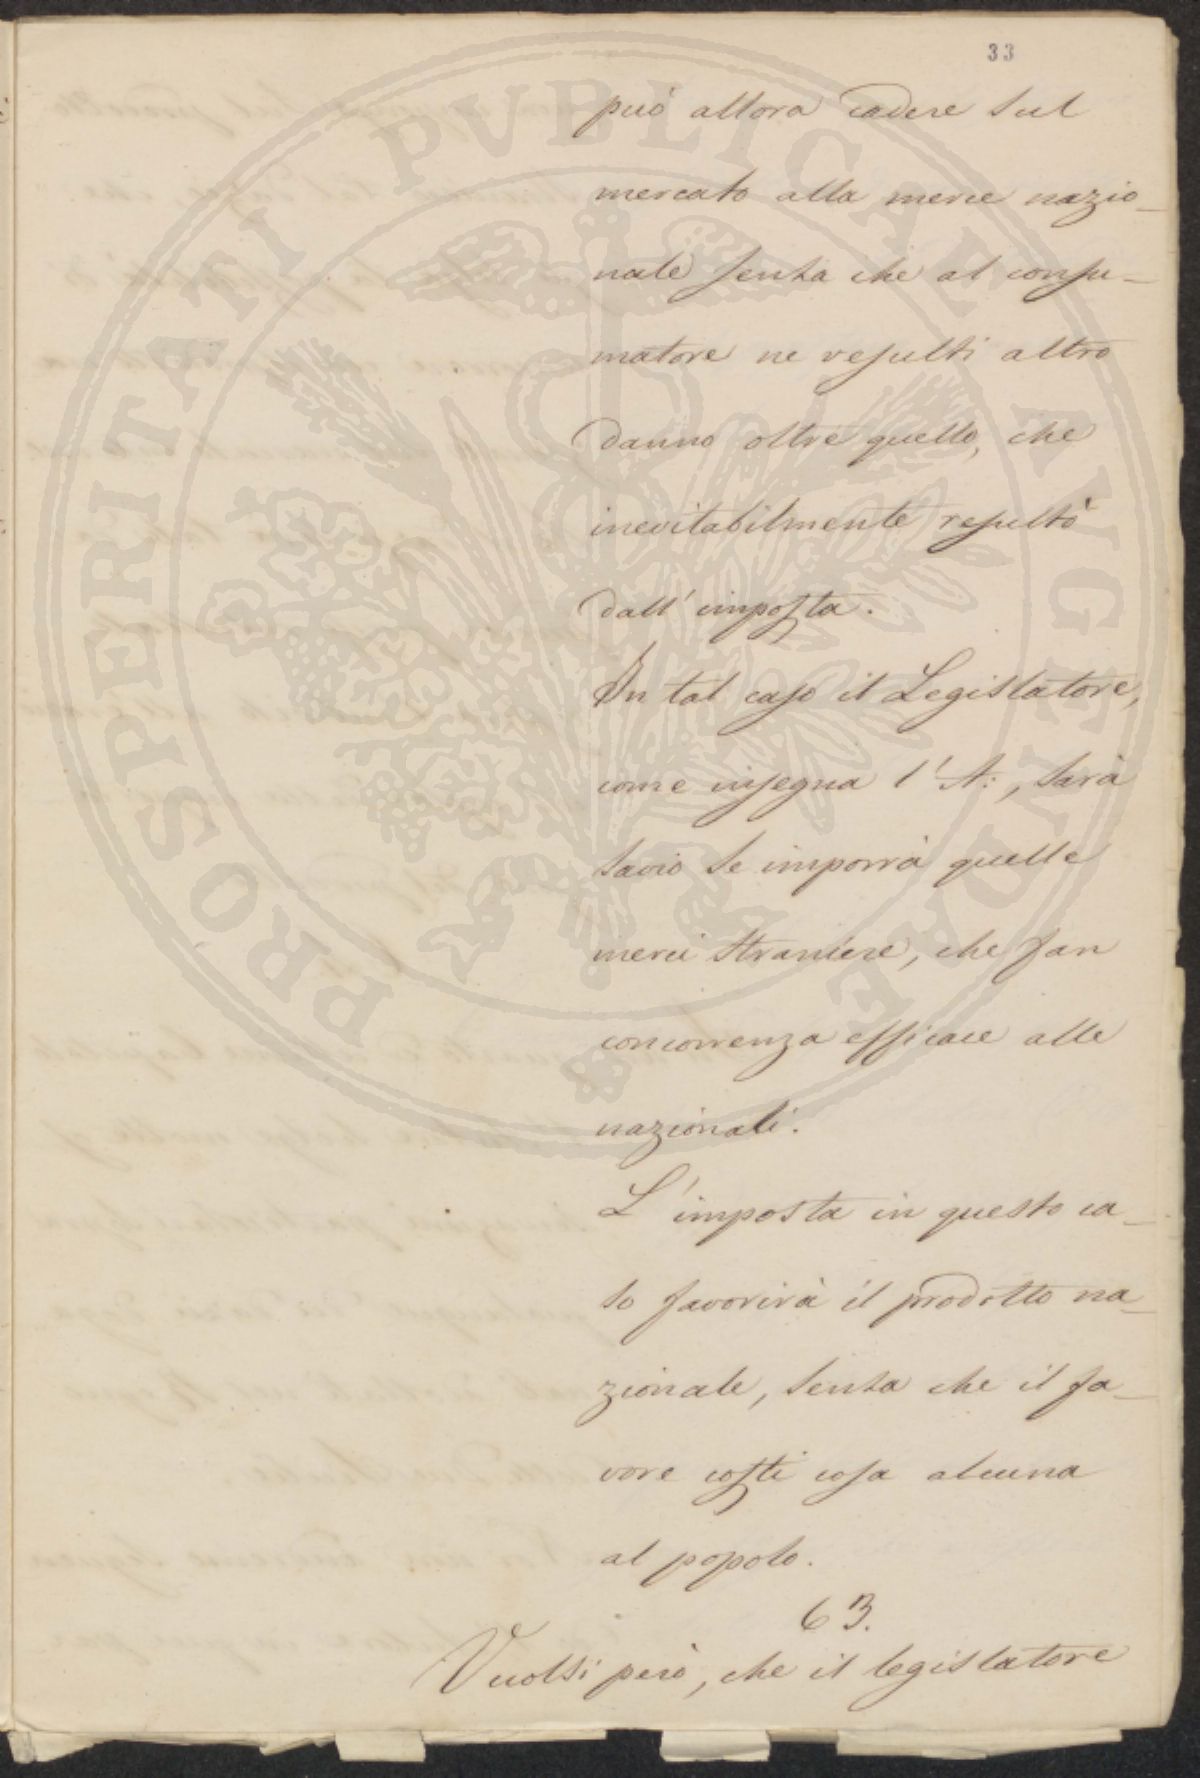 33
può allora cadere sul
mercato alla merce nazio-
nale senza che al consu-
matore ne resulti altro
danno oltre quello, che
inevitabilmente resultò
dall'imposta.
In tal caso il Legislatore,
come insegna l'A:, sarà
savio se imporrà quelle
merci straniere, che fan
concorrenza efficace alle
nazionali.
L'imposta in questo ca-
so favorirà il prodotto na-
zionale, senza che il fa-
vore costi cosa alcuna
al popolo.
63.
Vuolsi però, che il legislatore
PROSPERITATI PVBLICAE AVGENDAE